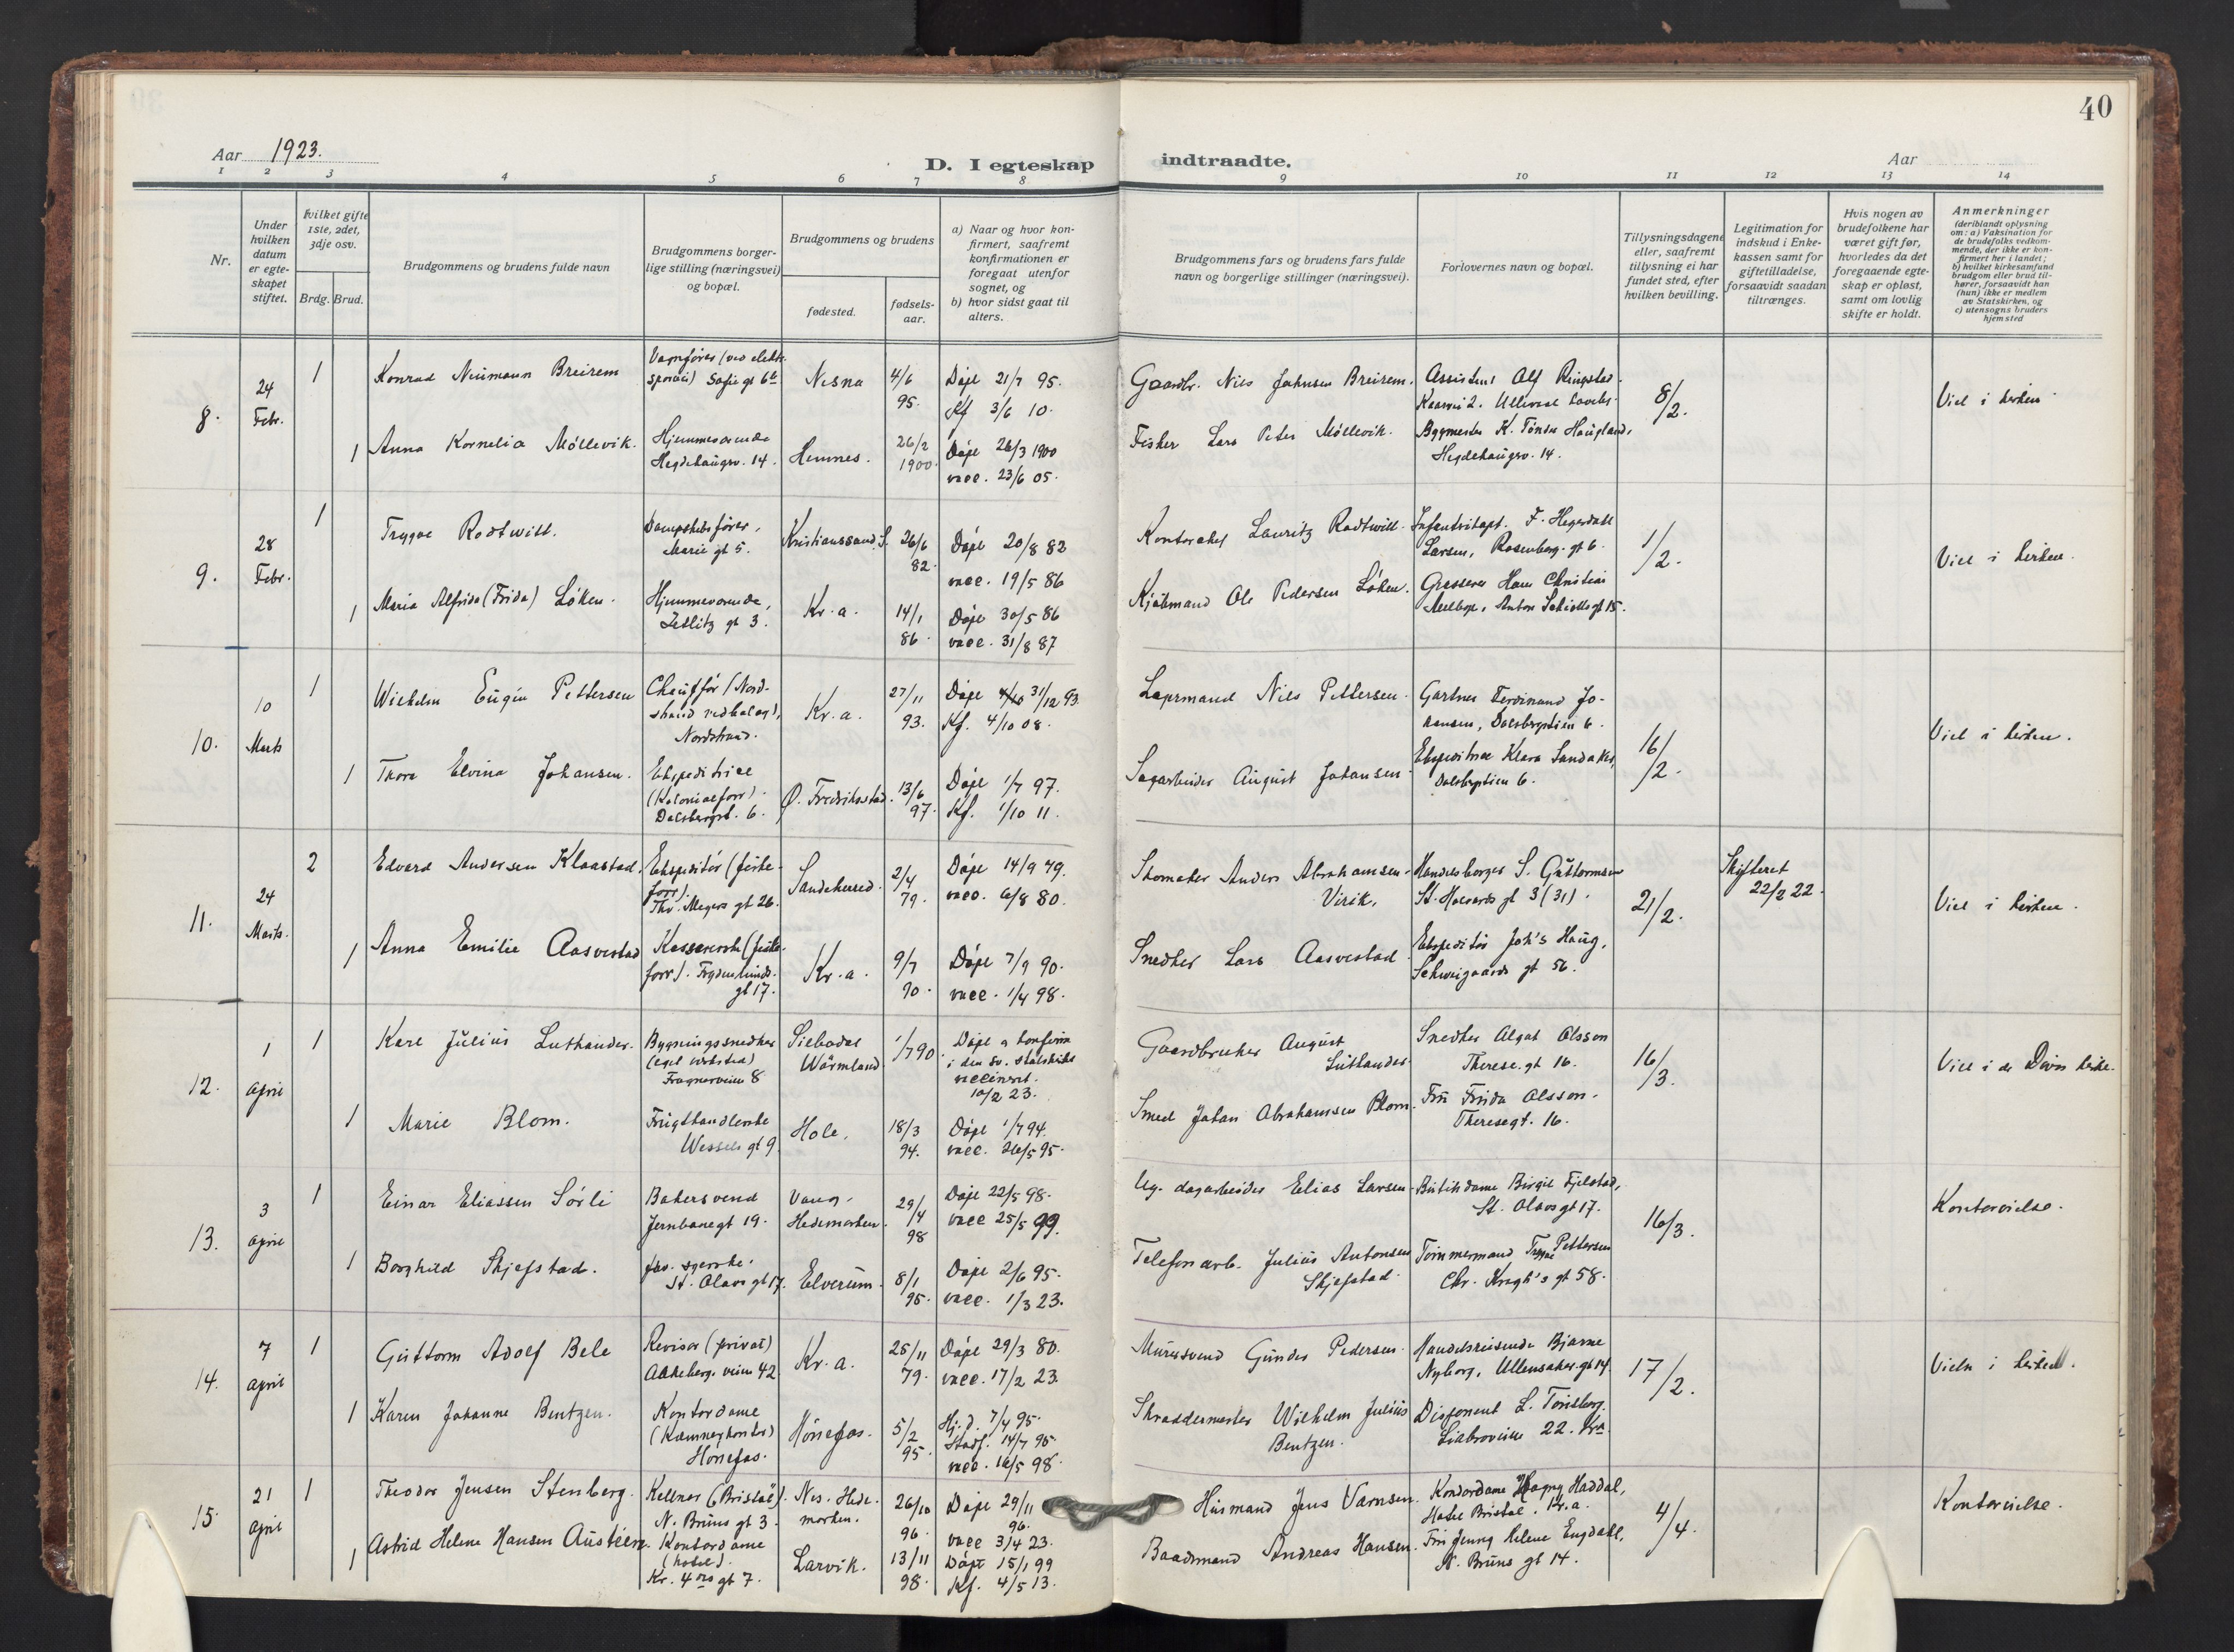 40
Aar 1923.
D. I egteskap
indtraadte.
Aar
1 2 3 4 5 6 7 8 9 10 11 12 13 14
Nr.
Under
hvilken
datum
er egte-
skapet
stiftet.
hvilket gifte
1ste, 2det,
3dje osv.
Brdg. Brud.
Brudgommens og brudens fulde navn
Brudgommens borger-
lige stilling (næringsvei)
og bopæl.
Brudgommens og brudens
fødested.
fødsels-
aar.
a) Naar og hvor kon-
firmert, saafremt
konfirmationen er
foregaat utenfor
sognet, og
b) hvor sidst gaat til
alters.
Brudgommens fars og brudens fars fulde
navn og borgerlige stillinger (næringsvei).
Forlovernes navn og bopæl.
Tillysningsdagene
eller, saafremt
tillysning ei har
fundet sted, efter
hvilken bevilling.
Legitimation for
indskud i Enke-
kassen samt for
giftetilladelse,
forsaavidt saadan
tiltrænges.
Hvis nogen av
brudefolkene har
været gift før,
hvorledes da det
foregaaende egte-
skap er opløst,
samt om lovlig
skifte er holdt.
Anmerkninger
(deriblandt oplysning
om: a) Vaksination for
de brudefolks vedkom-
mende, der ikke er kon-
firmert her i landet;
b) hvilket kirkesamfund
brudgom eller brud til-
hører, forsaavidt han
(hun) ikke er medlem
av Statskirken, og
c) utensogns bruders
hjemsted
8.
24
Febr.
1
Konrad Neumann Breirem
Vognfører (ved elektr.
sporvei) Sofie gt 6b
Nesna
4/6
95.
Døpt 21/7 95.
Kf 3/6 10.
Gaardbr. Nils Johnsen Breirem.
Assistent Alf Ringstad
Kaarvei 2. Ullevaal Haveby
8/2.
Viet i kirken
1
Anna Kornelia Möllevik.
Hjemmeværende
Hegdehaugsv. 14.
Hemnes.
26/2
1900.
Døpt 26/3 1900
vacc. 23/6 05.
Fisker Lars Peter Möllevik.
Bygmester K. Tönder Haugland,
Hegdehaugsv. 14.
9.
28
Febr.
1
Trygve Rodtwitt.
Dampskibsfører,
Marie gt 5.
Kristianssand S.
26/6
82.
Døpt 20/8 82
vacc. 19/5 86
Kontorchef Lauritz Rodtwitt.
Infanterikapt. F. Hegerdahl
Larsen, Rosenborg. gt 6.
1/2.
Viet i kirken.
1
Maria Alfrida (Frida) Löken.
Hjemmeværende,
Zetlitz gt 3.
Kr.a.
14/1
86.
Døpt 30/5 86
vacc. 31/8 87
Kjøbmand Ole Pedersen Løken.
Grosserer Hans Christian
Mellbye, Anton Schiötts gt 15.
10.
10
Marts
1
Wilhelm Eugén Pettersen
Chauffør (Nord-
strand vedhaler),
Nordstrand.
Kr.a.
27/11
93.
Døpt 31/12 93.
Kf. 4/10 08.
Lagermand Nils Pettersen.
Gartner Ferdinand Jo-
hansen, Dalsbergstien 6.
16/2.
Viet i kirken.
1
Thora Elvina Johansen.
Ekspeditrice
(Kolonialforr).
Dalsbergst. 6.
Ø. Fredrikstad.
13/6
97.
Døpt 1/7 97.
Kf. 1/10 11.
Sagarbeider August Johansen.
Ekspeditrice Klara Sandaker,
Dalsbergstien 6.
11.
24
Marts.
2
Edvard Andersen Klaastad.
Ekspeditör (fiske-
forr).
Thv. Meyers gt 26.
Sandeherred.
2/4
79.
Døpt 14/9 79.
vacc. 6/8 80.
Skomaker Anders Abrahamsen
Virik.
Handelsborger S. Guttormsen
St. Halvards gt 3 (31).
21/2.
Skifteret
22/2 22.
Viet i kirken.
1
Anna Emilie Aasvestad
Kassererske (fiske-
forr). Frydenlunds-
gt 17.
Kr.a.
9/7
90.
Døpt 7/9 90.
vacc. 1/4 98.
Snedker Lars Aasvestad
Ekspeditör Joh's Haug,
Schweigaards gt 56.
12.
1
April
1
Karl Julius Luthander.
Bygningssnedker
(eget verksted)
Frognerveien 8
Silbodal
Wärmland
1/7 90.
Døpt og konfirm
i den sv. statskirke
vaccineret.
10/2 23.
Gaardbruker August
Luthander
Snedker Algot Olsson
Therese. gt 16.
16/3.
Viet i de Døves kirke.
1
Marie Blom.
Frugthandlerske
Wessels gt 9.
Hole.
18/3
94.
Døpt 1/7 94.
vacc. 26/5 95.
Smed Johan Abrahamsen Blom.
Fru Frida Olsson.
Theresegt. 16.
13.
3
April
1
Einar Eliassen Sörli
Bakersvend
Jernbanegt 19.
Vang.
Hedemarken.
29/4
98
Døpt 22/5 98.
vacc 25/5 99.
Ug. dagarbeider Elias Larsen
Butikdame Birgit Fjelstad,
St. Olavs gt 17.
16/3.
Kontorvielse.
1
Borghild Skjefstad.
fab. syerske.
St. Olavs gt 17.
Elverum.
8/1
95.
Døpt 2/6 95.
vacc. 1/3 23.
Telefonarb. Julius Antonsen
Skjefstad.
Tömmermand Trygve Pettersen
Chr. Krogh's gt 58.
14.
7
April
1
Guttorm Adolf Bele
Revisor (privat)
Aakeberg. veien 42
Kr.a.
25/11
79.
Døpt 29/3 80.
vacc. 17/2 23.
Murersvend Gunder Pedersen.
Handelsreisende Bjarne
Nyborg, Ullensaker. gt 14.
17/2.
Vieln i kirken.
1
Karen Johanne Bentzen.
Kontordame
(Kæmnerkontor)
Hönefos.
Hönefos.
5/2
95.
Hj.d. 7/4 95.
Stadf. 14/7 95.
vacc. 16/5 98.
Skræddermester Wilhelm Julius
Bentzen.
Disponent L. Tönsberg.
Liabroveien 22. Kra.
15.
21
April
1
Theodor Jensen Stenberg.
Kellner ("Bristol").
N. Bruns gt 3.
Nes. Hede-
marken.
26/10
96.
Døpt 29/11
96.
vacc 3/4 23.
Husmand Jens Varnsen.
Kontordame Magny Haddal,
Hotel Bristol. Kr.a.
4/4.
Kontorvielse.
1
Astrid Helene Hansen Austeen.
Kontordame
(hotel).
Kr. 4des gt 7.
Larvik.
13/11
98.
Døpt 15/1 99
Kf. 4/5 13.
Baadsmand Andreas Hansen.
Fru Jenny Helene Engdahl,
N. Bruns gt 14.